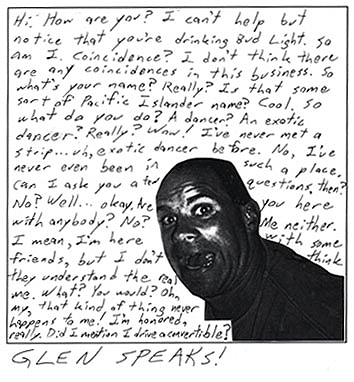 Hi. How are you? I can't help but
notice that you're drinking Bud Light. So
am I. Coincidence? I don't think there
are any coincidences in this business. So
what's your name? Really? Is that some
sort of Pacific Islander name? Cool. So
what do you do? A dancer? An exotic
dancer? Really? Wow! I've never met a
strip...uh, exotic dancer before. No, I've
never even been in such a place.
Can I ask you a few questions, then?
No? Well... okay. Are you here
with anybody? No? Me neither.
I mean, I'm here with some
friends, but I don't think
they understand the real
me. What? You would? Oh,
my, that kind of thing never
happens to me! I'm honored,
really. Did I mention I drive a convertible?
GLEN SPEAKS!